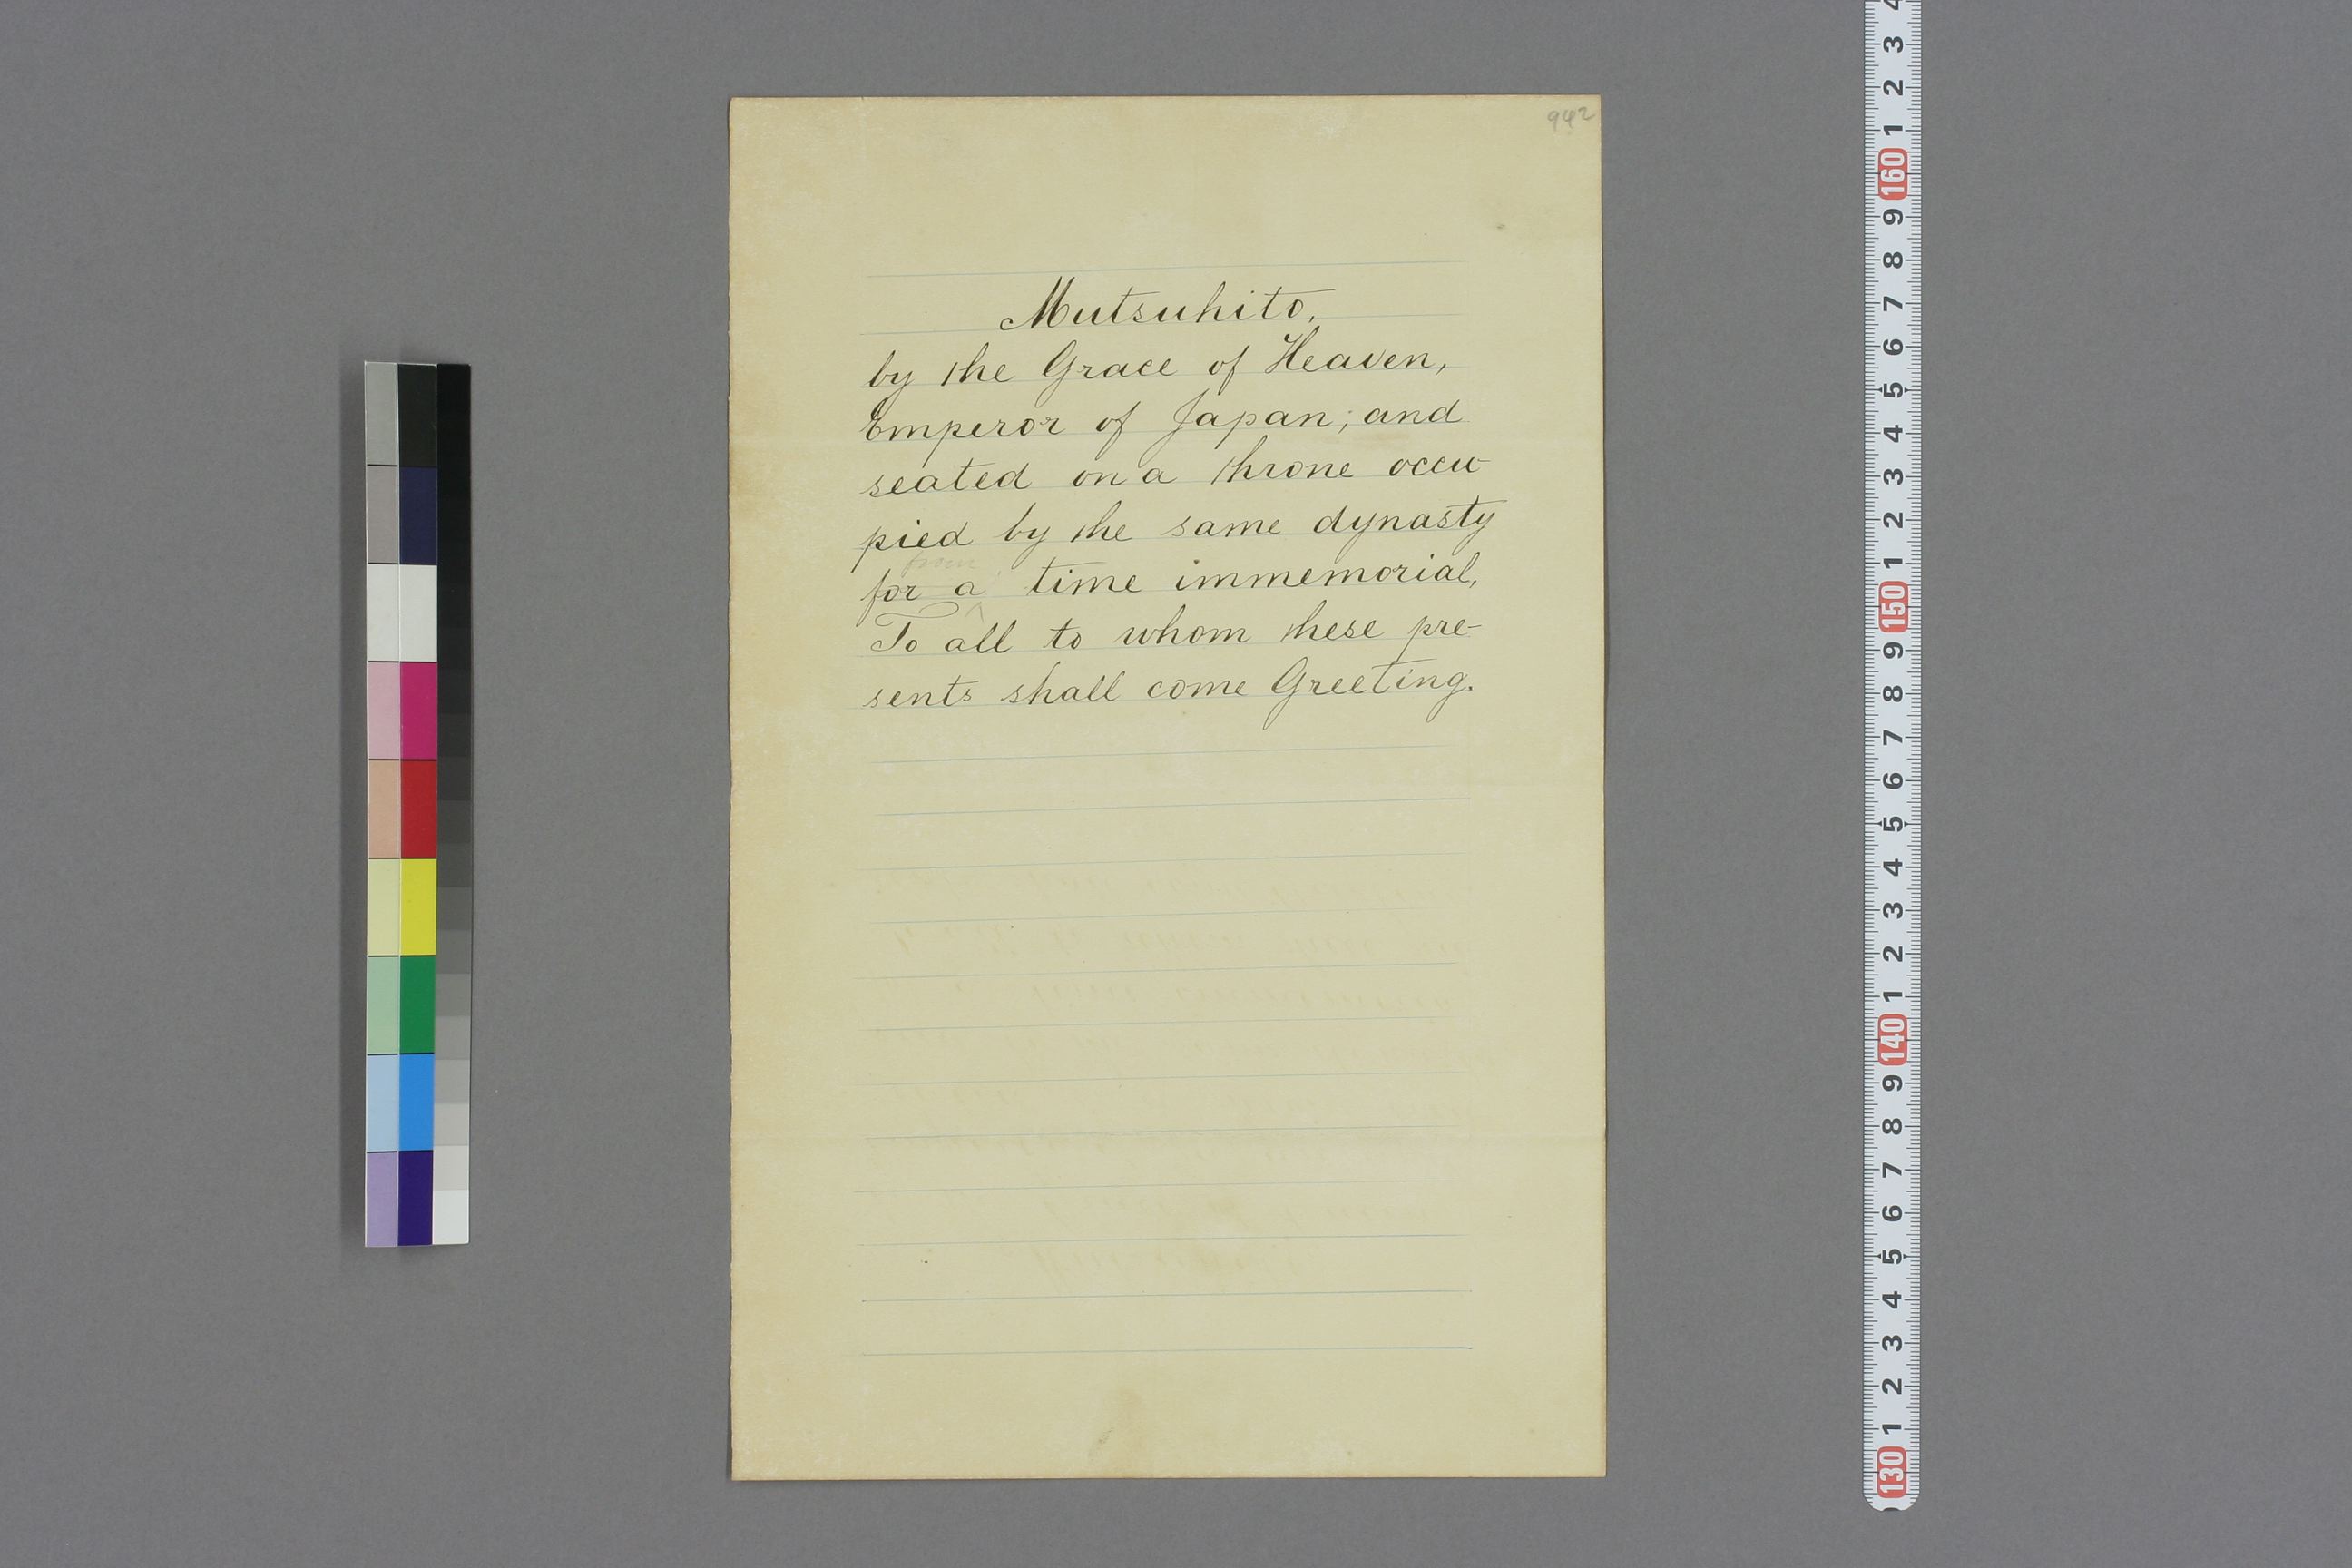 942
Mutsuhito,
by the Grace of Heaven,
Emperor of Japan; and
seated on a throne occu-
pied by the same dynasty
from
for a time immemorial,
To all to whom these pre-
sents shall come Greeting.
4
3
2
1
160
9
8
7
6
5
4
3
2
1
150
9
8
7
6
5
4
3
2
1
140
9
8
7
6
5
4
3
2
1
130